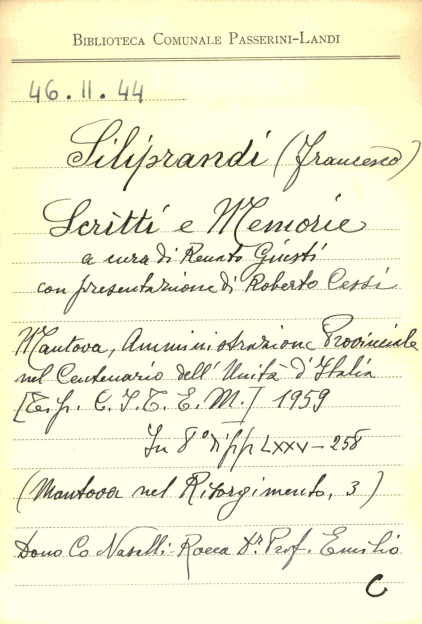 BIBLIOTECA COMUNALE PASSERINI-LANDI
46.II.44
Siliprandi (Francesco)
Scritti e Memorie
a cura di Renato Giusti
con presentazione di Roberto Cessi
Mantova, Amministrazione Provinciale
nel Centenario dell'Unità d'Italia
[E. p. C. I. T. E. M.] 1959
In 8° di pp LXXV-258
(Mantova nel Risorgimento, 3)
Dono Co Naselli-Rocca Dr Prof. Emilio
C